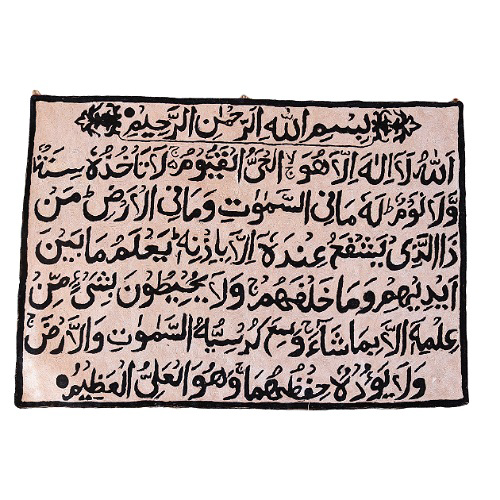 بِسْمِ اللهِ الرَّحْمٰنِ الرَّحِيْمِ
اَللهُ لَا اِلٰهَ اِلَّا هُوَ الْحَيُّ الْقَيُّوْمُ لَا تَاْخُذُهٗ سِنَةٌ
وَّلَا نَوْمٌ لَهٗ مَا فِي السَّمٰوٰتِ وَمَا فِي الْاَرْضِ مَنْ
ذَا الَّذِيْ يَشْفَعُ عِنْدَهٗ اِلَّا بِاِذْنِهٖ يَعْلَمُ مَا بَيْنَ
اَيْدِيْهِمْ وَمَا خَلْفَهُمْ وَلَا يُحِيْطُوْنَ بِشَيْءٍ مِّنْ
عِلْمِهٖ اِلَّا بِمَا شَآءَ وَسِعَ كُرْسِيُّهُ السَّمٰوٰتِ وَالْاَرْضَ
وَلَا يَـُٔوْدُهٗ حِفْظُهُمَا وَهُوَ الْعَلِيُّ الْعَظِيْمُ